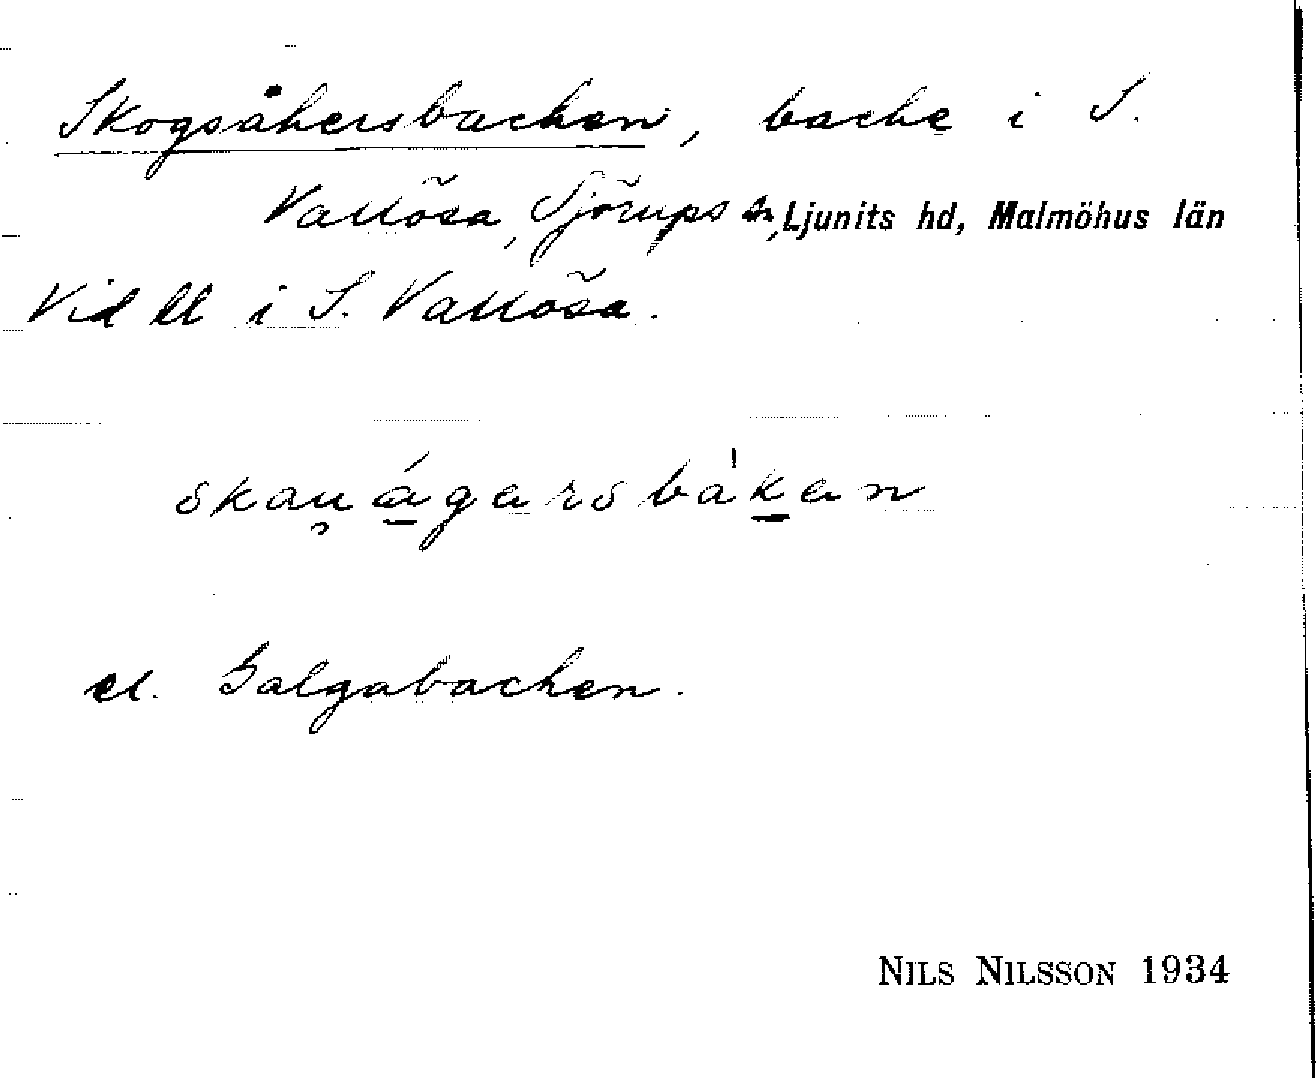 Skogsåkersbacken, backe i S.
Vallösa, Sjörups sn, Ljunits hd, Malmöhus län
Vid ll i S. Vallösa.
skau̯ágarsbàkan
el. Galgabacken.
NILS NILSSON 1934